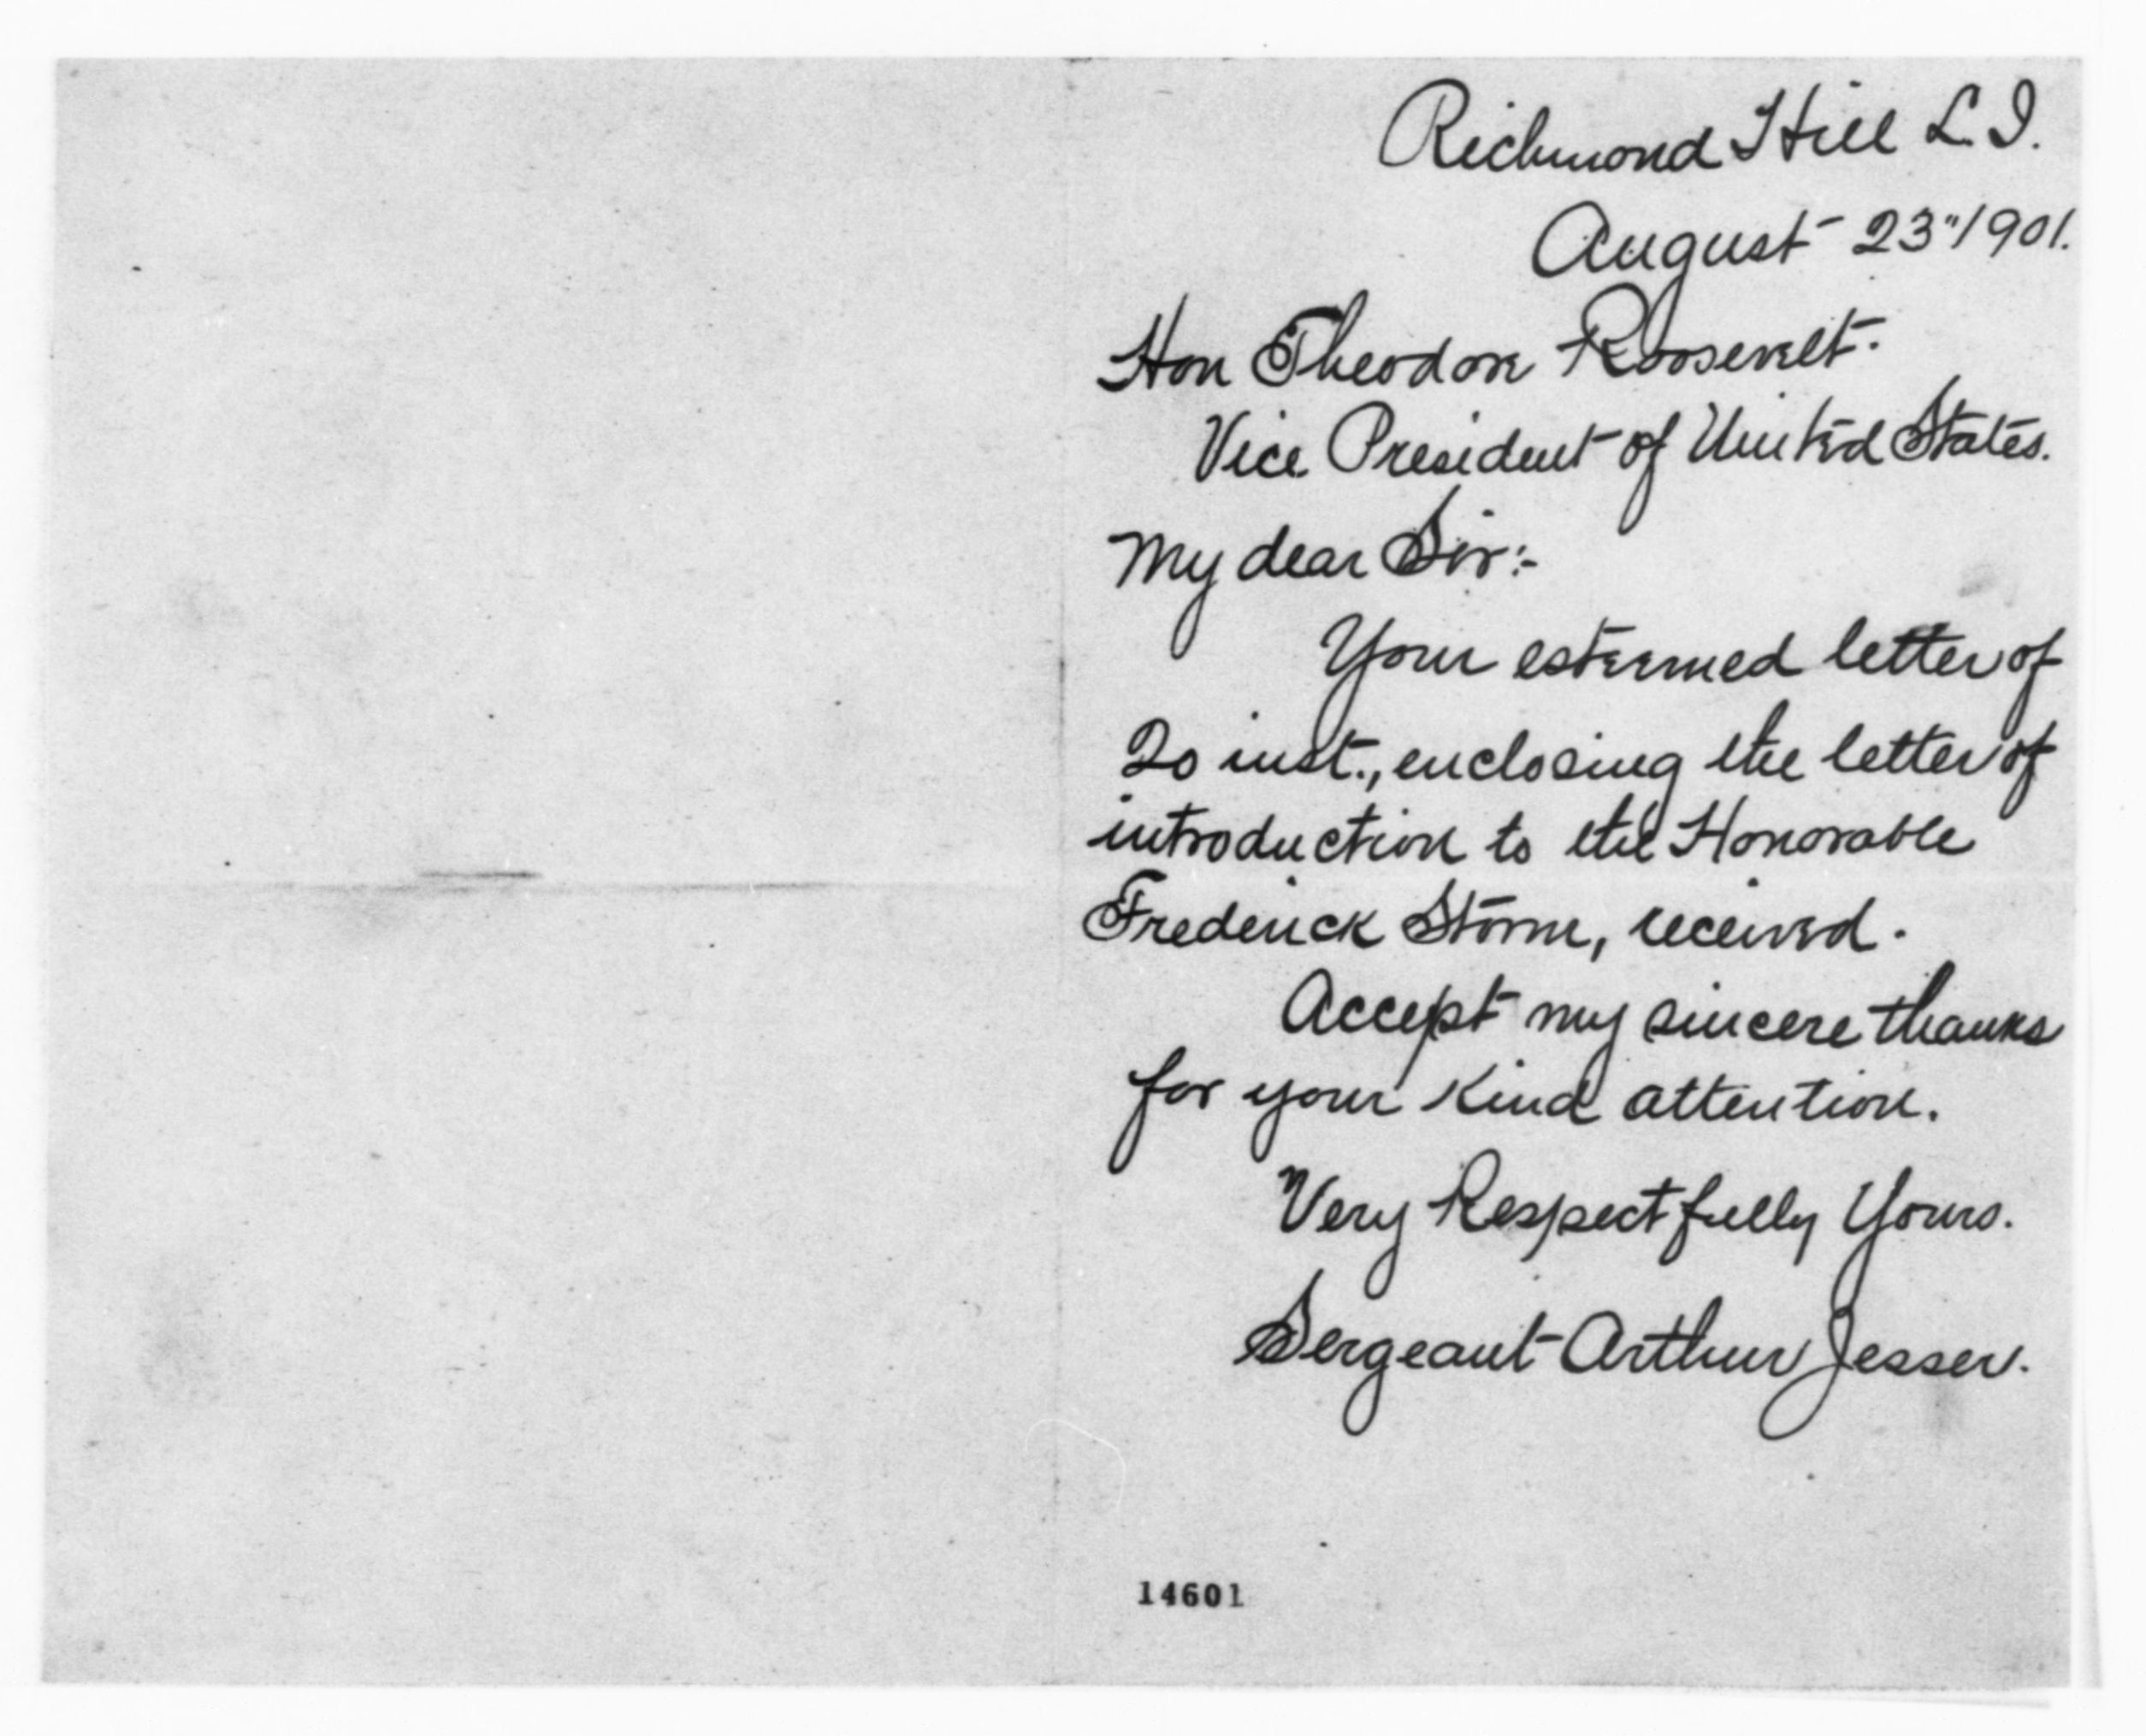 Richmond Hill L.I.
August 23" 1901.
Hon Theodore Roosevelt.
Vice President of United States.
My dear Sir:-
Your esteemed letter of
20 inst., enclosing the letter of
introduction to the Honorable
Frederick Storm, received.
Accept my sincere thanks
for your kind attention.
Very Respectfully Yours.
Sergeant Arthur Jesser.
14601